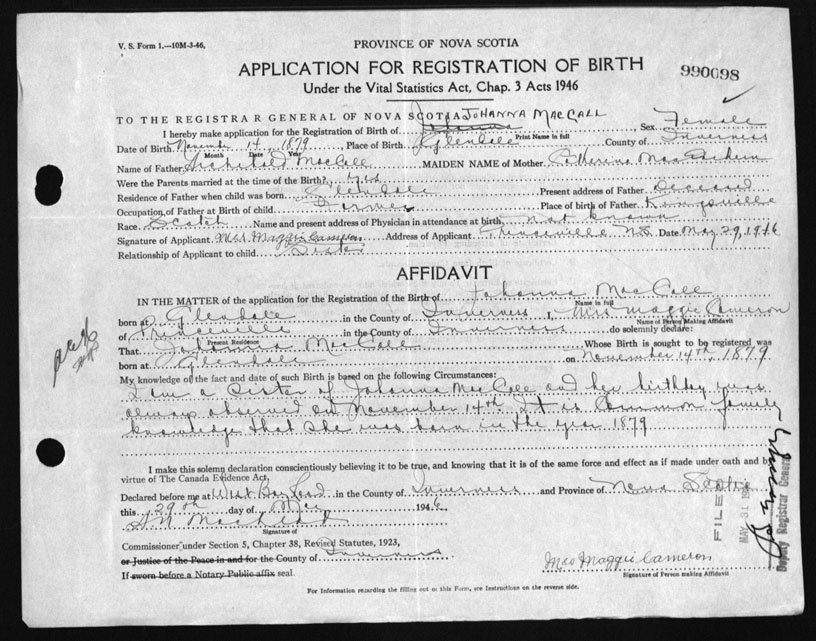 V. S. Form 1.—10M-3-46,
PROVINCE OF NOVA SCOTIA
APPLICATION FOR REGISTRATION OF BIRTH
990098
Under the Vital Statistics Act, Chap. 3 Acts 1946
TO THE REGISTRAR GENERAL OF NOVA SCOTIA JOHANNA MACCALL
I hereby make application for the Registration of Birth of Johanna Sex Female
Print Name in full
Date of Birth November 14, 1879 Place of Birth Glendale County of Inverness
Month Date Year
Name of Father Archibald MacCall MAIDEN NAME of Mother Catherine
Were the Parents married at the time of the Birth? yes
Residence of Father when child was born Glendale Present address of Father Deceased
Occupation of Father at Birth of child Farmer Place of birth of Father Kingsville
Race Scotch Name and present address of Physician in attendance at birth not known
Signature of Applicant Mrs Maggie Cameron Address of Applicant Princeville N.S. Date May 29, 1946
Relationship of Applicant to child Sister
AFFIDAVIT
IN THE MATTER of the application for the Registration of the Birth of Johanna MacCall
Name in full
born at Glendale in the County of Inverness I, Mrs Maggie Cameron
Name of Person Making Affidavit
of Princeville in the County of Inverness do solemnly declare:
Present Residence
That Johanna MacCall Whose Birth is sought to be registered was
born at Glendale on November 14th, 1879
My knowledge of the fact and date of such Birth is based on the following Circumstances:
I am a sister of Johanna MacCall and her birthday was
always observed on November 14th. It is common family
knowledge that she was born in the year 1879
I make this solemn declaration conscientiously believing it to be true, and knowing that it is of the same force and effect as if made under oath and by
virtue of The Canada Evidence Act,
Declared before me at West Bay Road in the County of Inverness and Province of Nova Scotia
this 29th day of May 1946
Signature of
Commissioner under Section 5, Chapter 38, Revised Statutes, 1923,
or Justice of the Peace in and for the County of Inverness
If sworn before a Notary Public affix seal.
Mrs Maggie Cameron
Signature of Person making Affidavit
For Information regarding the filling out of this Form, see Instructions on the reverse side.
FILED
MAY 31 19
Deputy Registrar General